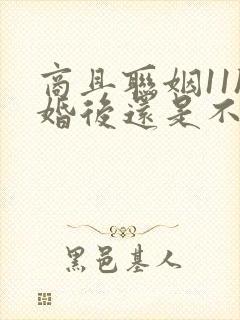 商且聯姻11
婚後還是不
黑邑基人